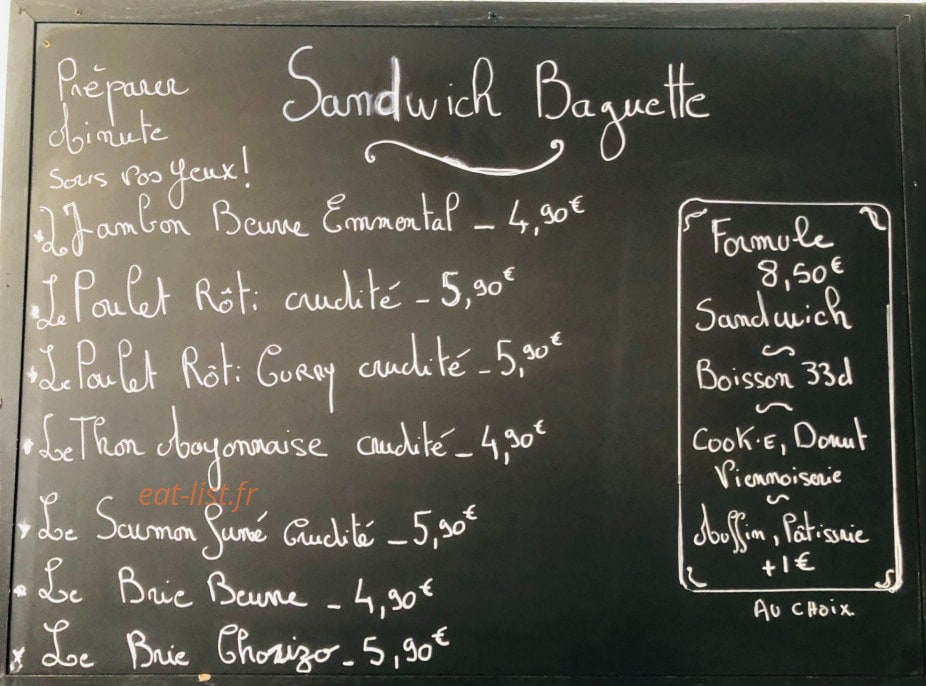 Sandwich Baguette
Préparer
Minute
sous vos yeux!
Le Jambon Beurre Emmental - 4,90€
Le Poulet Rôti crudité - 5,90€
Le Poulet Rôti Curry crudité - 5,90€
Le Thon Mayonnaise crudité - 4,90€
eat-list.fr
Le Saumon fumé Crudité - 5,90€
Le Brie Beurre - 4,90€
Le Brie Chorizo - 5,90€
Formule
8,50€
Sandwich
~
Boisson 33cl
~
Cookie, Donut
Viennoiserie
~
Muffin, Pâtisserie
+1€
AU CHOIX